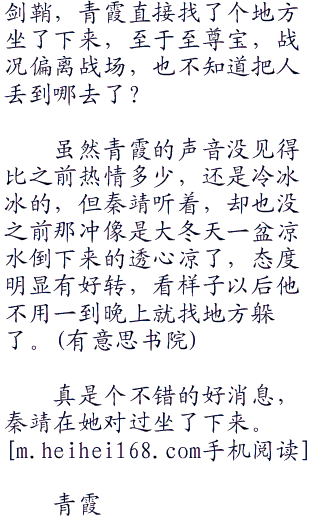 剑鞘，青霞直接找了个地方
坐了下来，至于至尊宝，战
况偏离战场，也不知道把人
丢到哪去了？
虽然青霞的声音没见得
比之前热情多少，还是冷冰
冰的，但秦靖听着，却也没
之前那冲像是大冬天一盆凉
水倒下来的透心凉了，态度
明显有好转，看样子以后他
不用一到晚上就找地方躲
了。(有意思书院)
真是个不错的好消息，
秦靖在她对过坐了下来。
[m.heihei168.com手机阅读]
青霞